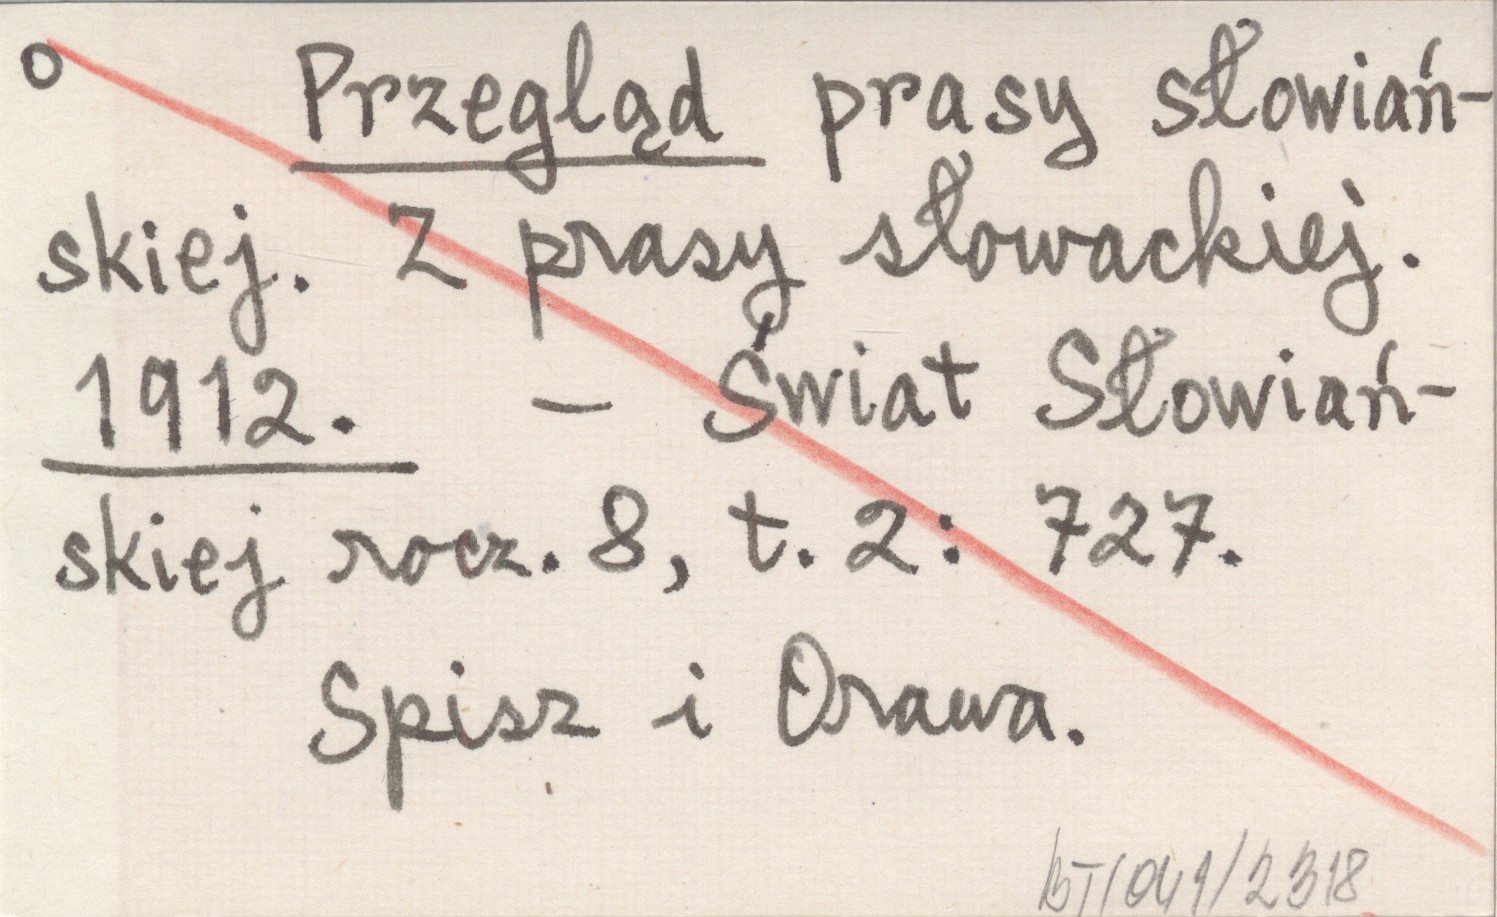 o Przegląd prasy słowiań-
skiej. Z prasy słowackiej.
1912. – Świat Słowiań-
skiej rocz. 8, t. 2: 727.
Spisz i Orawa.
BT/041/2318